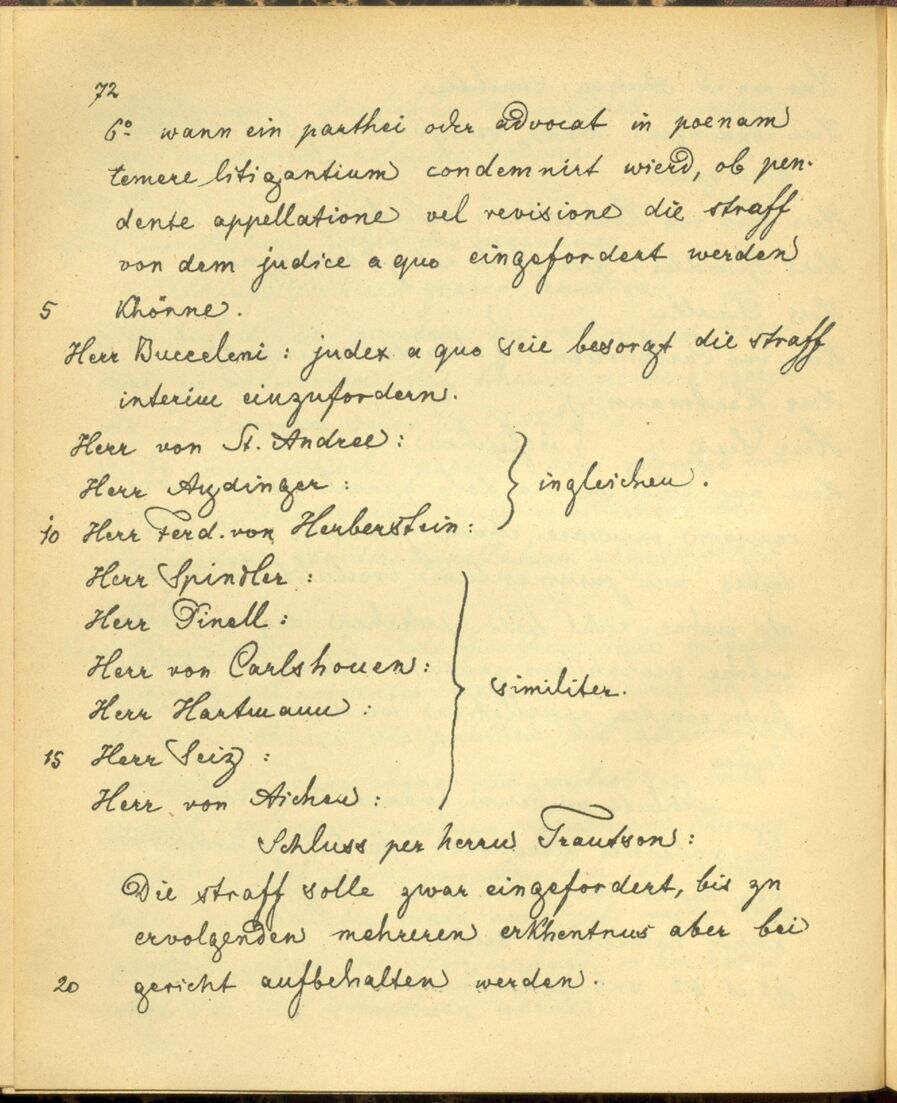 72
6° wann ein parthei oder advocat in poenam
temere litigantium condemnirt wierd, ob pen-
dente appellatione vel revisione die straff
von dem judice a quo eingefordert werden
5 khönne.
Herr Bucceleni : judex a quo seie besorgt die straff
interim einzufordern.
Herr von St. Andree :
Herr Aydinger : ingleichen.
10 Herr Ferd. von Herberstein :
Herr Spindler :
Herr Pinell :
Herr von Carlshouen :
similiter.
Herr Hartmann :
15 Herr Seiz :
Herr von Aichen :
Schluss per herrn Trautson :
Die straff solle zwar eingefordert, bis zu
ervolgenden mehreren erkhentnus aber bei
20 gericht aufbehalten werden.